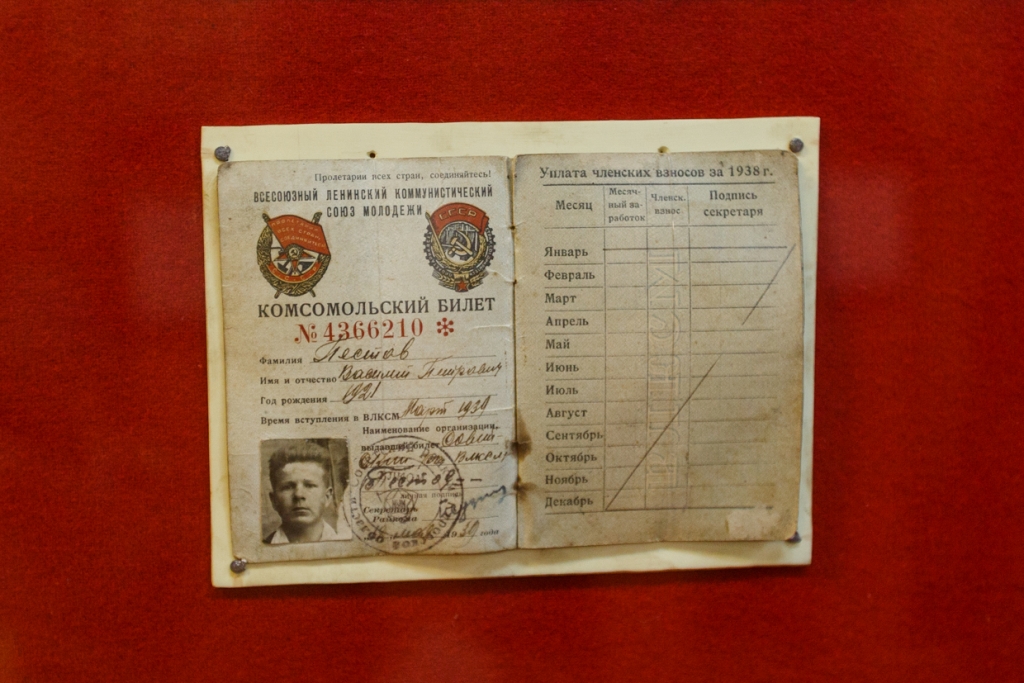 Пролетарии всех стран, соединяйтесь!
ВСЕСОЮЗНЫЙ ЛЕНИНСКИЙ КОММУНИСТИЧЕСКИЙ
СОЮЗ МОЛОДЕЖИ
СССР
КОМСОМОЛЬСКИЙ БИЛЕТ
№ 4366210 *
Фамилия Пестов
Имя и отчество Василий Петрович
Год рождения 1921
Время вступления в ВЛКСМ Март 1939
Наименование организации,
выдавшей билет
Пестов
личная подпись
Секретарь
Райкома
1939 года
Уплата членских взносов за 1938 г.
Месяц
Месяч-
ный за-
работок
Членск.
взнос
Подпись
секретаря
Январь
Февраль
Март
Апрель
Май
Июнь
Июль
Август
Сентябрь
Октябрь
Ноябрь
Декабрь